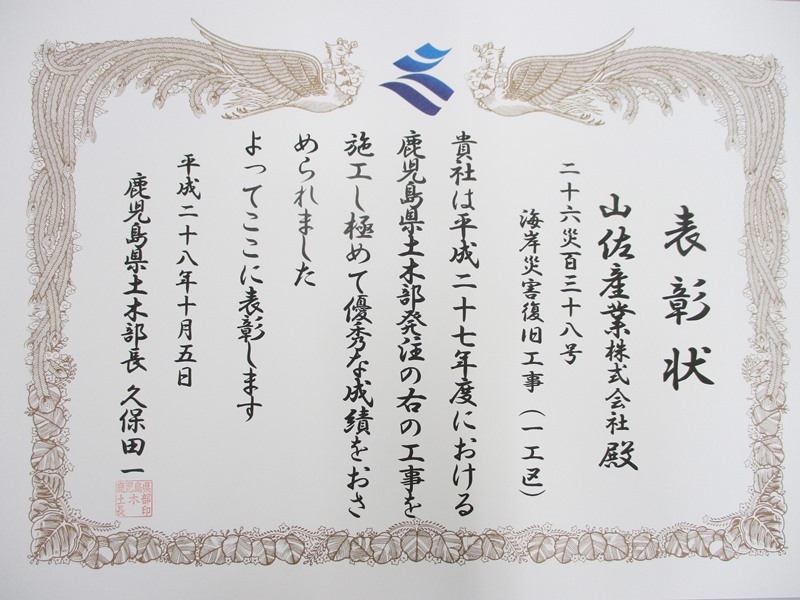 表彰状
山佐産業株式会社 殿
二十六災百三十八号
海岸災害復旧工事（一工区）
貴社は平成二十七年度における
鹿児島県土木部発注の右の工事を
施工し極めて優秀な成績をおさ
められました
よってここに表彰します
平成二十八年十月五日
鹿児島県土木部長 久保田一